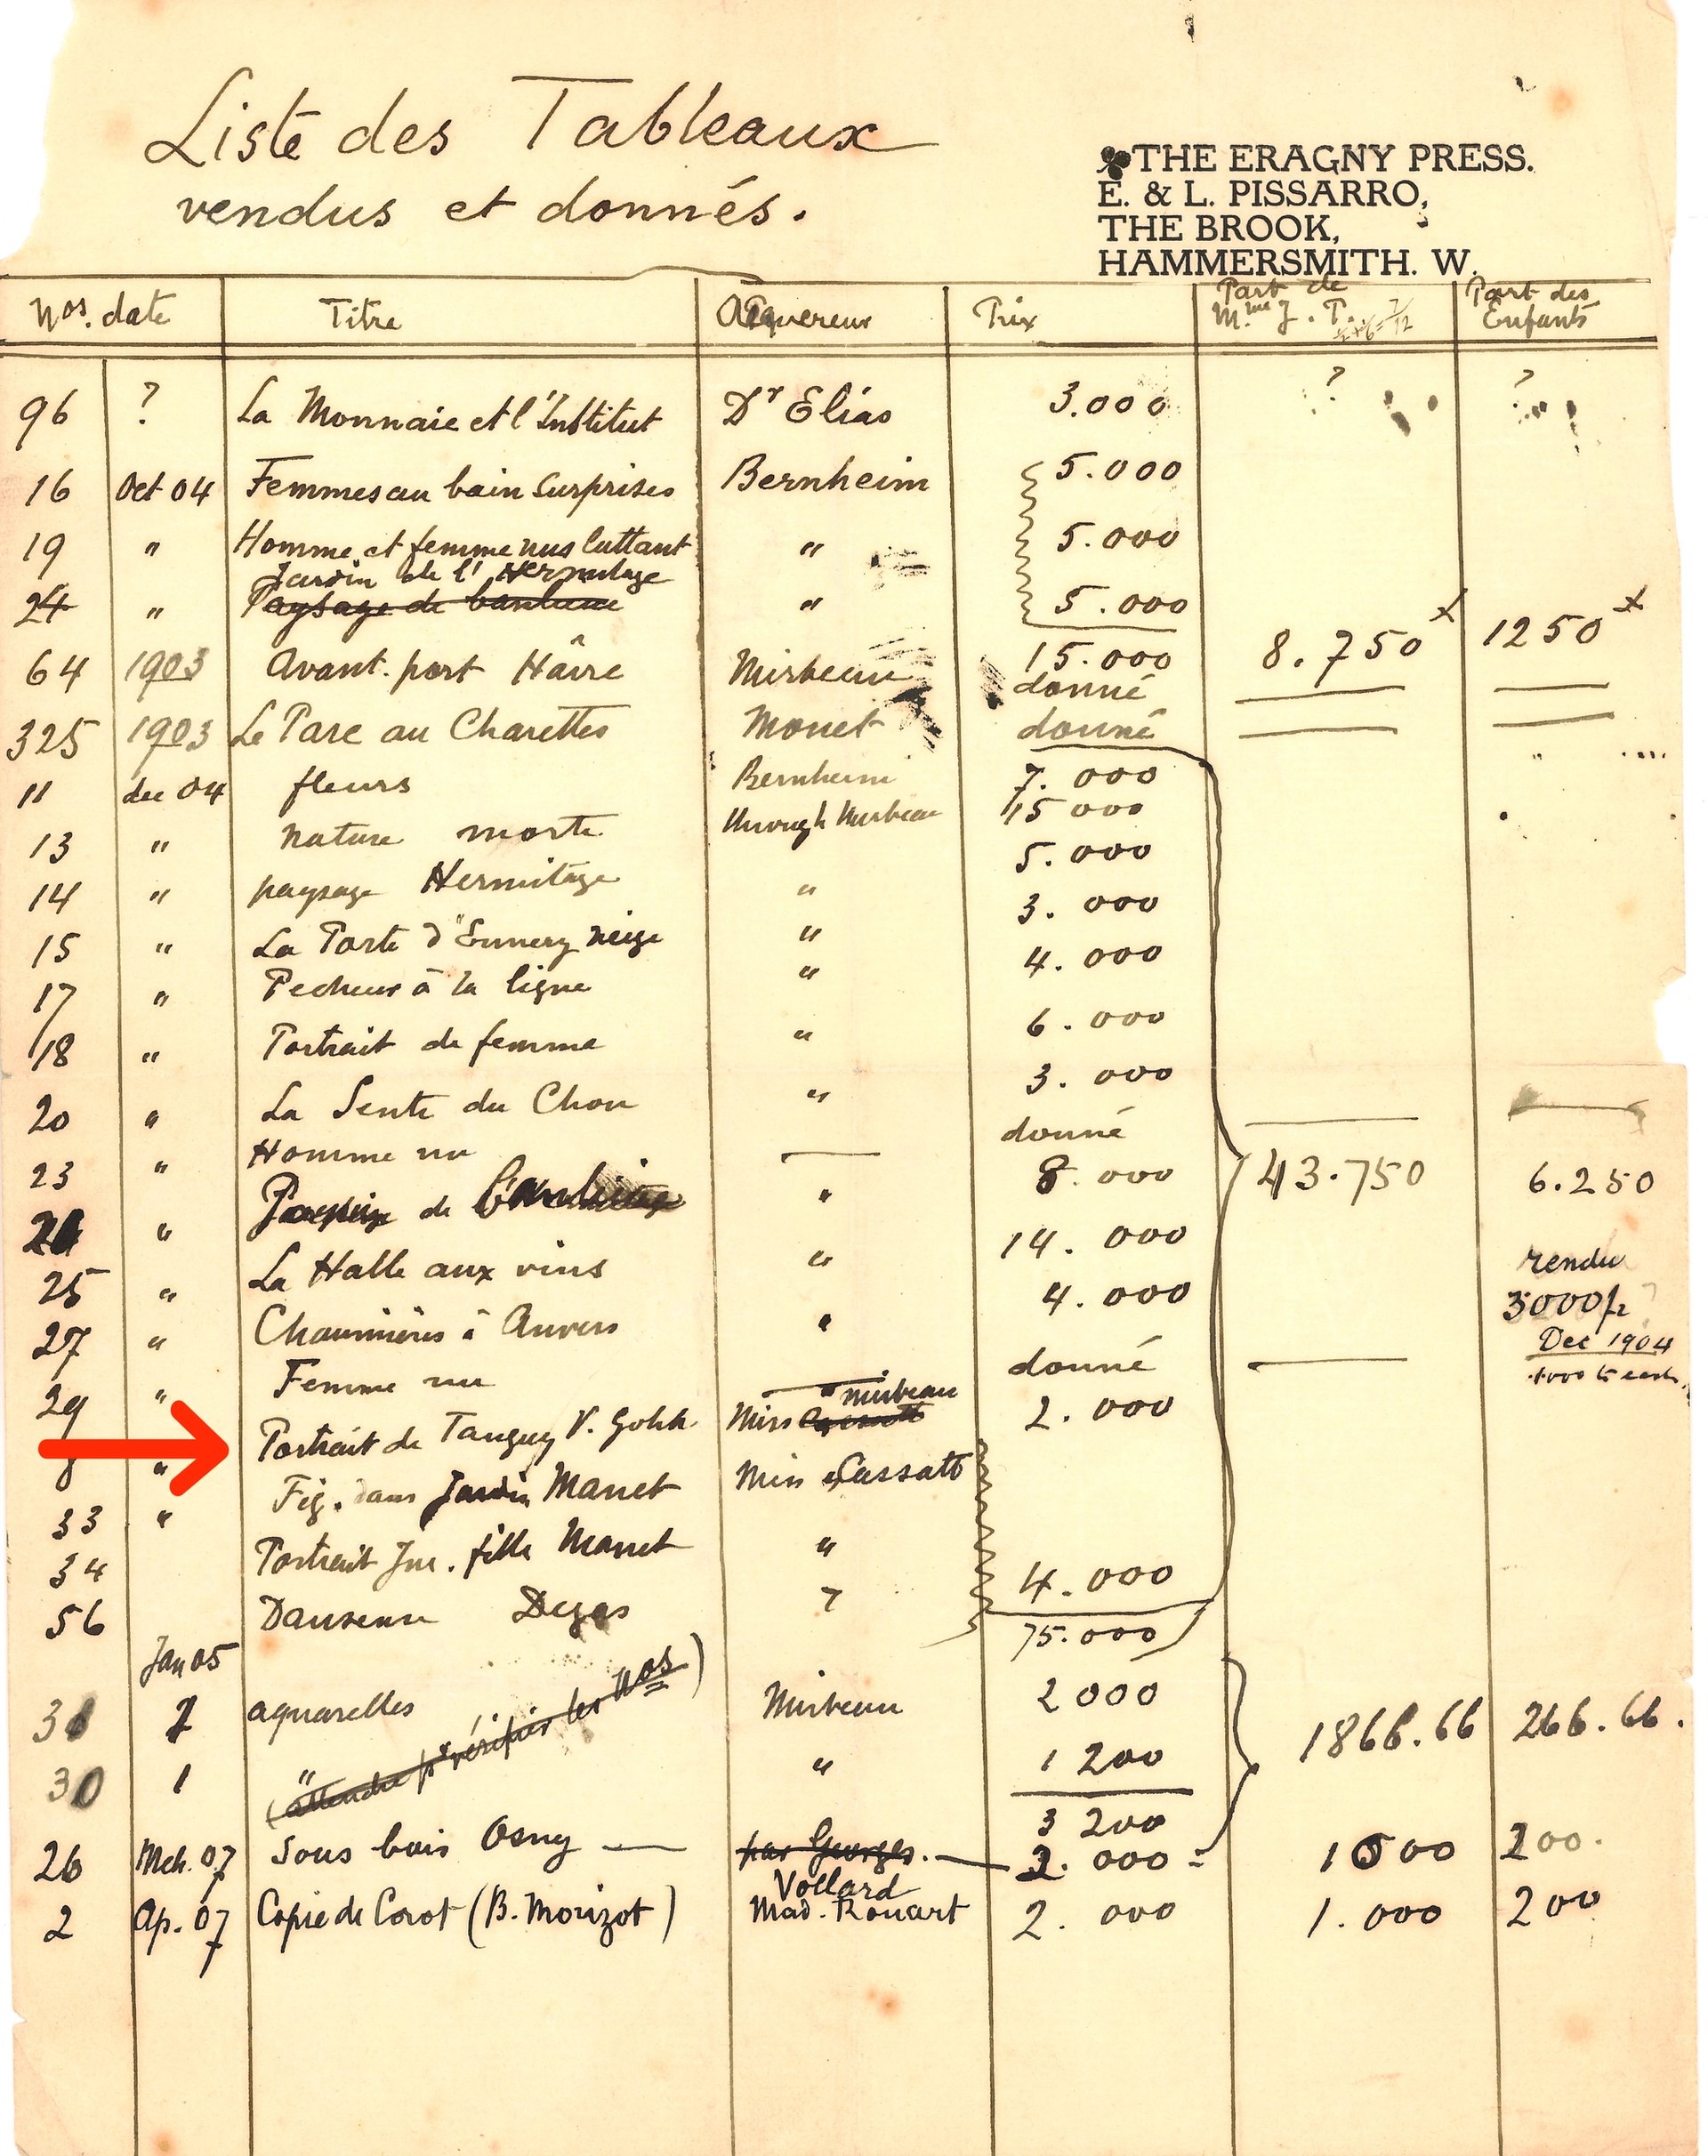 Liste des Tableaux
vendus et donnés.
THE ERAGNY PRESS.
E. & L. PISSARRO,
THE BROOK,
HAMMERSMITH. W.
Nos. date Titre Prix Part de Mme J. P. 7/12 Part des Enfants
96 ? La Monnaie et l'Institut Dr Elias 3.000 ? ?
16 Oct 04 Femmes au bain surprises Bernheim 5.000
19 " Homme et femme nus luttant " 5.000
Jardin de l'Hermitage
24 " Paysage de banlieue " 5.000
15.000 8.750 x 1250 x
64 1903 Avant. port Hâvre Mirbeau donné
325 1903 Le Parc au Charettes Monet donné
11 dec 04 fleurs Bernheim 7.000
13 " nature morte through Mirbeau 15 000
14 " paysage Hermitage " 5.000
15 " La Porte d'Ennery neige " 3.000
17 " Pecheur à la ligne " 4.000
18 " Portrait de femme " 6.000
20 " La Sente du Chou " 3.000
23 " Homme nu — donné
" de " 8.000 43.750 6.250
25 " La Halle aux vins " 14.000
27 " Chaumières à Auvers " 4.000
rendu
3000fr
Dec 1904
29 " Femme nu — donné
" Portrait de Tanguy V. Gohh Miss mirbeau 2.000
33 " Fig. dans Jardin Manet Miss Cassatt
34 Portrait Jne. fille Manet "
56 Danseuse Degas " 4.000
75.000
Jan 05
31 2 aquarelles Mirbeau 2000 1866.66 266.66.
30 1 " " 1200
(attendre pr vérifier les Nos)
3 200
26 Mch. 07 Sous bois Osny — par Georges. — 2.000 = 1000 200.
Vollard
2 Ap. 07 Copie de Corot (B. Morizot) Mad. Rouart 2.000 1.000 200